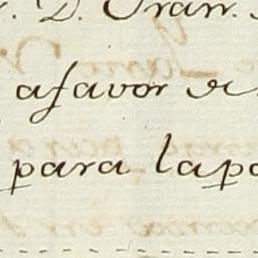 D. Fran.
afavor de
para lapo